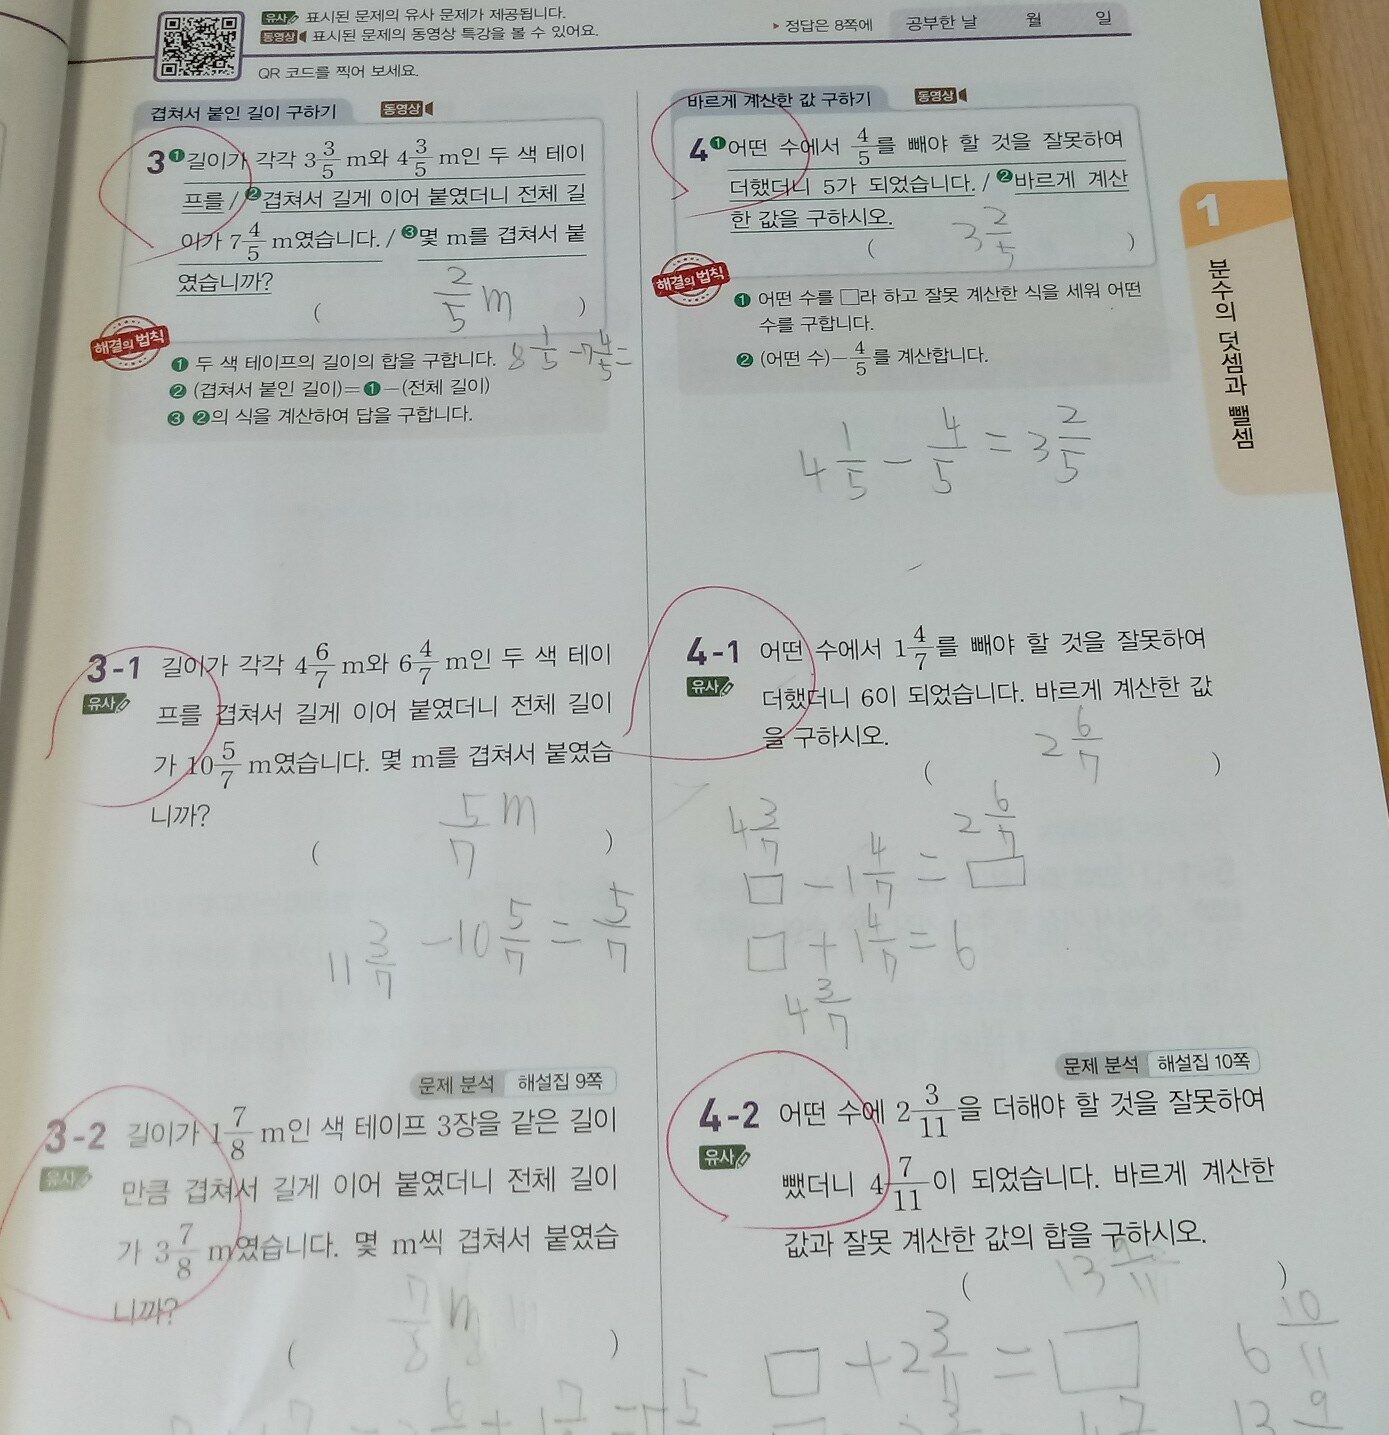 유사 표시된 문제의 유사 문제가 제공됩니다.
동영상 표시된 문제의 동영상 특강을 볼 수 있어요.
QR 코드를 찍어 보세요.
▸ 정답은 8쪽에
공부한 날 월 일
겹쳐서 붙인 길이 구하기 동영상
3 ❶길이가 각각 3 3/5 m와 4 3/5 m인 두 색 테이
프를 / ❷겹쳐서 길게 이어 붙였더니 전체 길
이가 7 4/5 m였습니다. / ❸몇 m를 겹쳐서 붙
였습니까?
( 2/5 m )
해결의 법칙
❶ 두 색 테이프의 길이의 합을 구합니다. 8 1/5 - 7 4/5 =
❷ (겹쳐서 붙인 길이)=❶-(전체 길이)
❸ ❷의 식을 계산하여 답을 구합니다.
3-1 길이가 각각 4 6/7 m와 6 4/7 m인 두 색 테이
유사 프를 겹쳐서 길게 이어 붙였더니 전체 길이
가 10 5/7 m였습니다. 몇 m를 겹쳐서 붙였습
니까?
( 5/7 m )
11 3/7 - 10 5/7 = 5/7
문제 분석 해설집 9쪽
3-2 길이가 1 7/8 m인 색 테이프 3장을 같은 길이
유사 만큼 겹쳐서 길게 이어 붙였더니 전체 길이
가 3 7/8 m였습니다. 몇 m씩 겹쳐서 붙였습
니까?
( 7/8 m )
바르게 계산한 값 구하기 동영상
4 ❶어떤 수에서 4/5를 빼야 할 것을 잘못하여
더했더니 5가 되었습니다. / ❷바르게 계산
한 값을 구하시오.
( 3 2/5 )
해결의 법칙
❶ 어떤 수를 □라 하고 잘못 계산한 식을 세워 어떤
수를 구합니다.
❷ (어떤 수)-4/5를 계산합니다.
4 1/5 - 4/5 = 3 2/5
4-1 어떤 수에서 1 4/7를 빼야 할 것을 잘못하여
유사 더했더니 6이 되었습니다. 바르게 계산한 값
을 구하시오.
( 2 6/7 )
4 3/7 2 6/7
□ - 1 4/7 = □
□ + 1 4/7 = 6
4 3/7
문제 분석 해설집 10쪽
4-2 어떤 수에 2 3/11을 더해야 할 것을 잘못하여
유사 뺐더니 4 7/11이 되었습니다. 바르게 계산한
값과 잘못 계산한 값의 합을 구하시오.
( 13 9/11 )
□ + 2 3/11 = □ 6 10/11
1
분수의 덧셈과 뺄셈